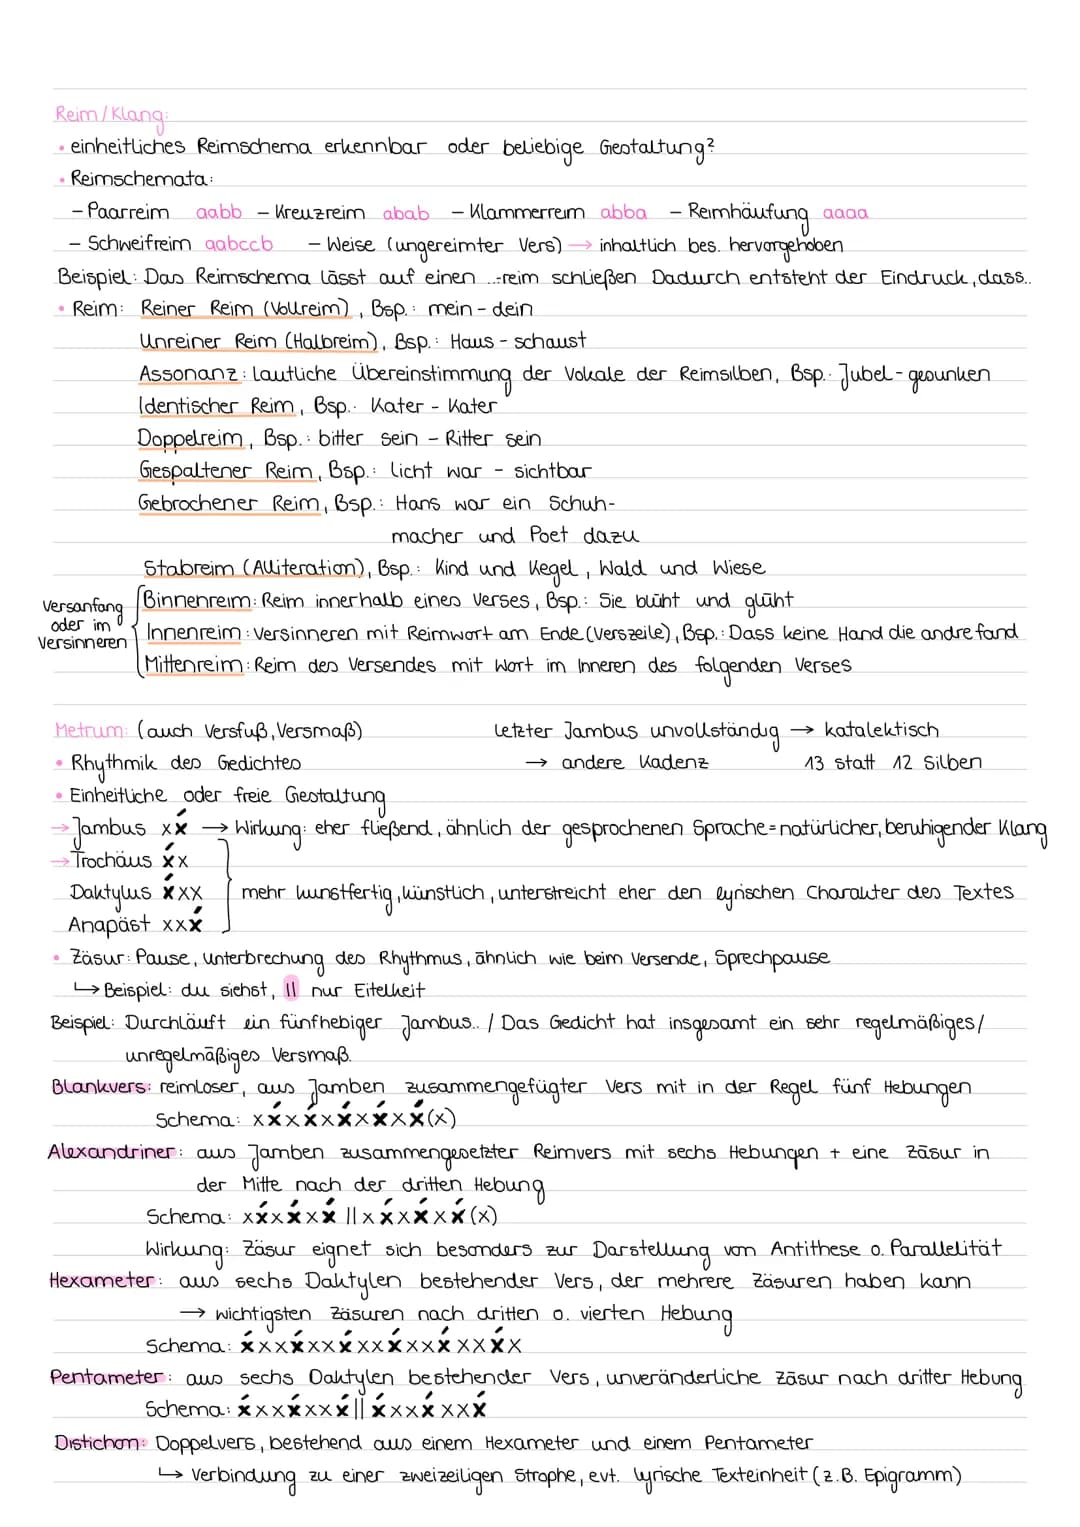 Reim/Klang:
• einheitliches Reimschema erkennbar oder beliebige Gestaltung?
• Reimschemata:
- Paarreim aabb - Kreuzreim abab - Klammerreim abba - Reimhäufung aaaa
- Schweifreim aabccb - Weise (ungereimter Vers) → inhaltlich bes. hervorgehoben
Beispiel: Das Reimschema lässt auf einen ...-reim schließen Dadurch entsteht der Eindruck, dass..
• Reim: Reiner Reim (Vollreim), Bsp.: mein - dein
Unreiner Reim (Halbreim), Bsp.: Haus - schaust
Assonanz: Lautliche Übereinstimmung der Vokale der Reimsilben, Bsp.: Jubel - gesunken
Identischer Reim, Bsp.: Kater - Kater
Doppelreim, Bsp.: bitter sein - Ritter sein
Gespaltener Reim, Bsp.: licht war - sichtbar
Gebrochener Reim, Bsp.: Hans war ein Schuh-
macher und Poet dazu
Stabreim (Alliteration), Bsp.: Kind und Kegel, Wald und Wiese
Versanfang oder im Versinneren
Binnenreim: Reim innerhalb eines Verses, Bsp.: Sie blüht und glüht
Innenreim: Versinneren mit Reimwort am Ende (Verszeile), Bsp.: Dass keine Hand die andre fand
Mittenreim: Reim des Versendes mit Wort im Inneren des folgenden Verses
Metrum: (auch Versfuß, Versmaß) letzter Jambus unvollständig → katalektisch
• Rhythmik des Gedichtes → andere Kadenz 13 statt 12 Silben
• Einheitliche oder freie Gestaltung
→ Jambus xx́ → Wirkung: eher fließend, ähnlich der gesprochenen Sprache = natürlicher, beruhigender Klang
→ Trochäus x́x
Daktylus x́xx mehr kunstfertig, künstlich, unterstreicht eher den lyrischen Charakter des Textes
Anapäst xxx́
• Zäsur: Pause, Unterbrechung des Rhythmus, ähnlich wie beim Versende, Sprechpause
↳ Beispiel: du siehst, || nur Eitelkeit
Beispiel: Durchläuft ein fünfhebiger Jambus.. / Das Gedicht hat insgesamt ein sehr regelmäßiges/
unregelmäßiges Versmaß.
Blankvers: reimloser, aus Jamben zusammengefügter Vers mit in der Regel fünf Hebungen
Schema: xx́xx́xx́xx́xx́(x)
Alexandriner: aus Jamben zusammengesetzter Reimvers mit sechs Hebungen + eine Zäsur in
der Mitte nach der dritten Hebung
Schema: xx́xx́xx́ || xx́xx́xx́(x)
Wirkung: Zäsur eignet sich besonders zur Darstellung von Antithese o. Parallelität
Hexameter: aus sechs Daktylen bestehender Vers, der mehrere Zäsuren haben kann
→ wichtigsten Zäsuren nach dritten o. vierten Hebung
Schema: x́xxx́xxx́xxx́xxx́xxx́x
Pentameter: aus sechs Daktylen bestehender Vers, unveränderliche Zäsur nach dritter Hebung
Schema: x́xxx́xxx́||x́xxx́xxx́
Distichon: Doppelvers, bestehend aus einem Hexameter und einem Pentameter
↳ Verbindung zu einer zweizeiligen Strophe, evt. lyrische Texteinheit (z.B. Epigramm)